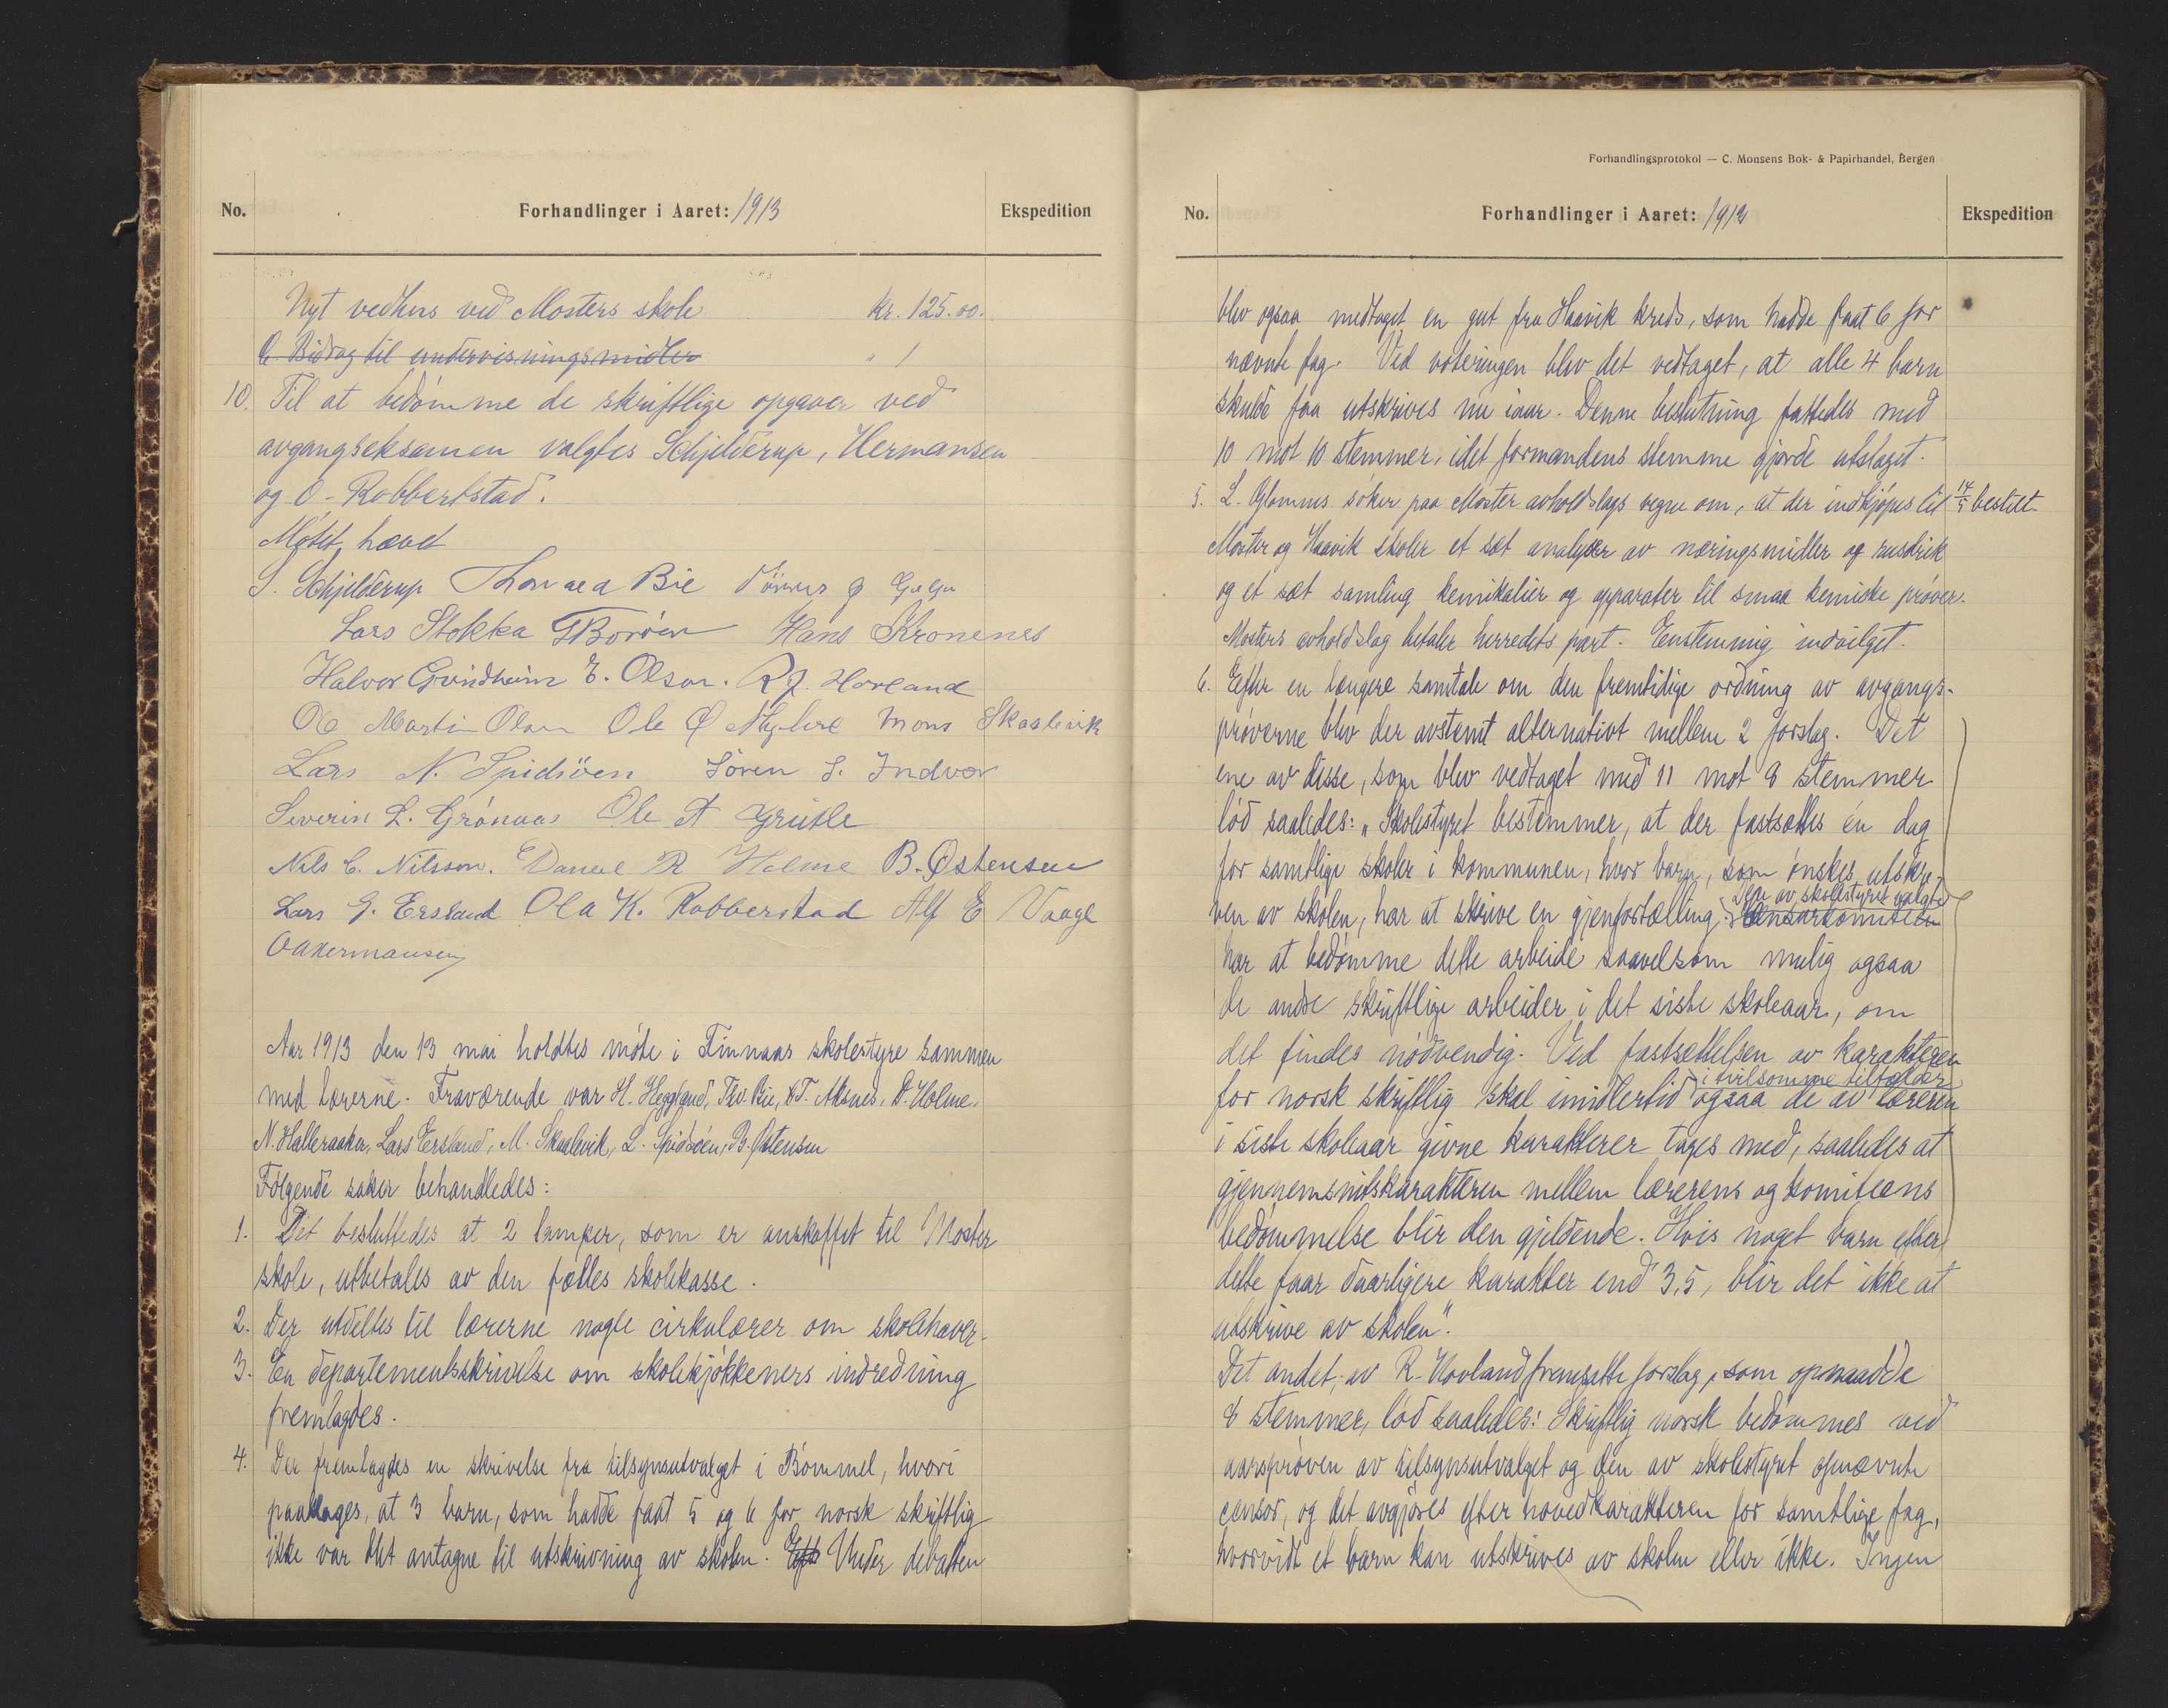 No. Forhandlinger i Aaret: 1913 Ekspedition
Nyt vedhus ved Mosters skole kr. 125.00.
Bidrag til undervisningsmidler " 1
10. Til at bedömme de skriftlige opgaver ved
avgangseksamen valgtes Schjelderup, Hermansen
og O. Robberstad.
Mötet hævet
S. Schjelderup Thomas Bie
Lars Stokka Hans Kronenes
Halvor Grindheim E. Olsen. R J. Hovland
Ole Martin Olsen Ole Ø Myhre Mons Skaalevik
Lars N. Spidsöen Sören S. Indvær
Severin L. Grönaas Ole A Grutle
Nils C. Nilsson. Daniel R Holme B. Østensen
Lars G. Ersland Ola K. Robberstad Alf E Vaage
OAHermansen
Aar 1913 den 13 mai holdtes möte i Finnaas skolestyre sammen
med lærerne. Fraværende var H. Heggland, Tho. Bie, T. Aksnes, D. Holme,
N. Halleraaker, Lars Ersland, M. Skaalevik, L. Spidsöen, B. Østensen
Fölgende saker behandledes:
1. Det besluttedes at 2 lamper, som er anskaffet til Moster
skole, utbetales av den fælles skolekasse.
2. Der utdeltes til lærerne nogle cirkulærer om skolehaver.
3. En departementsskrivelse om skolekjökkeners indredning
fremlagdes.
4. Der fremlagdes en skrivelse fra tilsynsutvalget i Bömmel, hvori
paaklages, at 3 barn, som hadde faat 5 og 6 for norsk skriftlig
ikke var blet antagne til utskrivning av skolen. Eft Under debatten
Forhandlingsprotokol — C. Monsens Bok- & Papirhandel, Bergen
No. Forhandlinger i Aaret: 1913 Ekspedition
blev ogsaa medtaget en gut fra Haavik kreds, som hadde faat 6 for
nævnte fag. Ved voteringen blev det vedtaget, at alle 4 barn
skulde faa utskrives nu iaar. Denne beslutning fattedes med
10 mot 10 stemmer, idet formandens stemme gjorde utslaget.
5. L. Glomnes söker paa Moster avholdslags vegne om, at der indkjöpes til 14/5 bestilt.
Moster og Haavik skoler et sæt analyser av næringsmidler og rusdrik
og et sæt samling kemikalier og apparater til smaa kemiske pröver.
Mosters avholdslag betaler herredets part. Enstemmig indvilget.
6. Efter en længere samtale om den fremtidige ordning av avgangs-
pröverne blev der avstemt alternativt mellem 2 forslag. Det
ene av disse, som blev vedtaget med 11 mot 8 stemmer
löd saaledes: "Skolestyret bestemmer, at der fastsættes én dag
for samtlige skoler i kommunen, hvor barn, som önskes utskre-
ven av skolen, har at skrive en gjenfortælling. Den av skolestyret valgte Censurkomiteen
har at bedömme dette arbeide saavelsom mulig ogsaa
de andre skriftlige arbeider i det siste skoleaar, om
det findes nödvendig. Ved fastsættelsen av karakteren
for norsk skriftlig skal imidlertid i tvilsomme tilfælder ogsaa de av læreren
i siste skoleaar givne karakterer tages med, saaledes at
gjennemsnitskarakteren mellem lærerens og komiteens
bedömmelse blir den gjeldende. Hvis noget barn efter
dette faar daarligere karakter end 3,5, blir det ikke at
utskrive av skolen".
Det andet, av R. Hovland fremsatte forslag, som opnaadde
8 stemmer, löd saaledes: Skriftlig norsk bedömmes ved
aarspröven av tilsynsutvalget og den av skolestyret opnævnte
censor, og det avgjöres efter hovedkarakteren for samtlige fag,
hvorvidt et barn kan utskrives av skolen eller ikke. Ingen